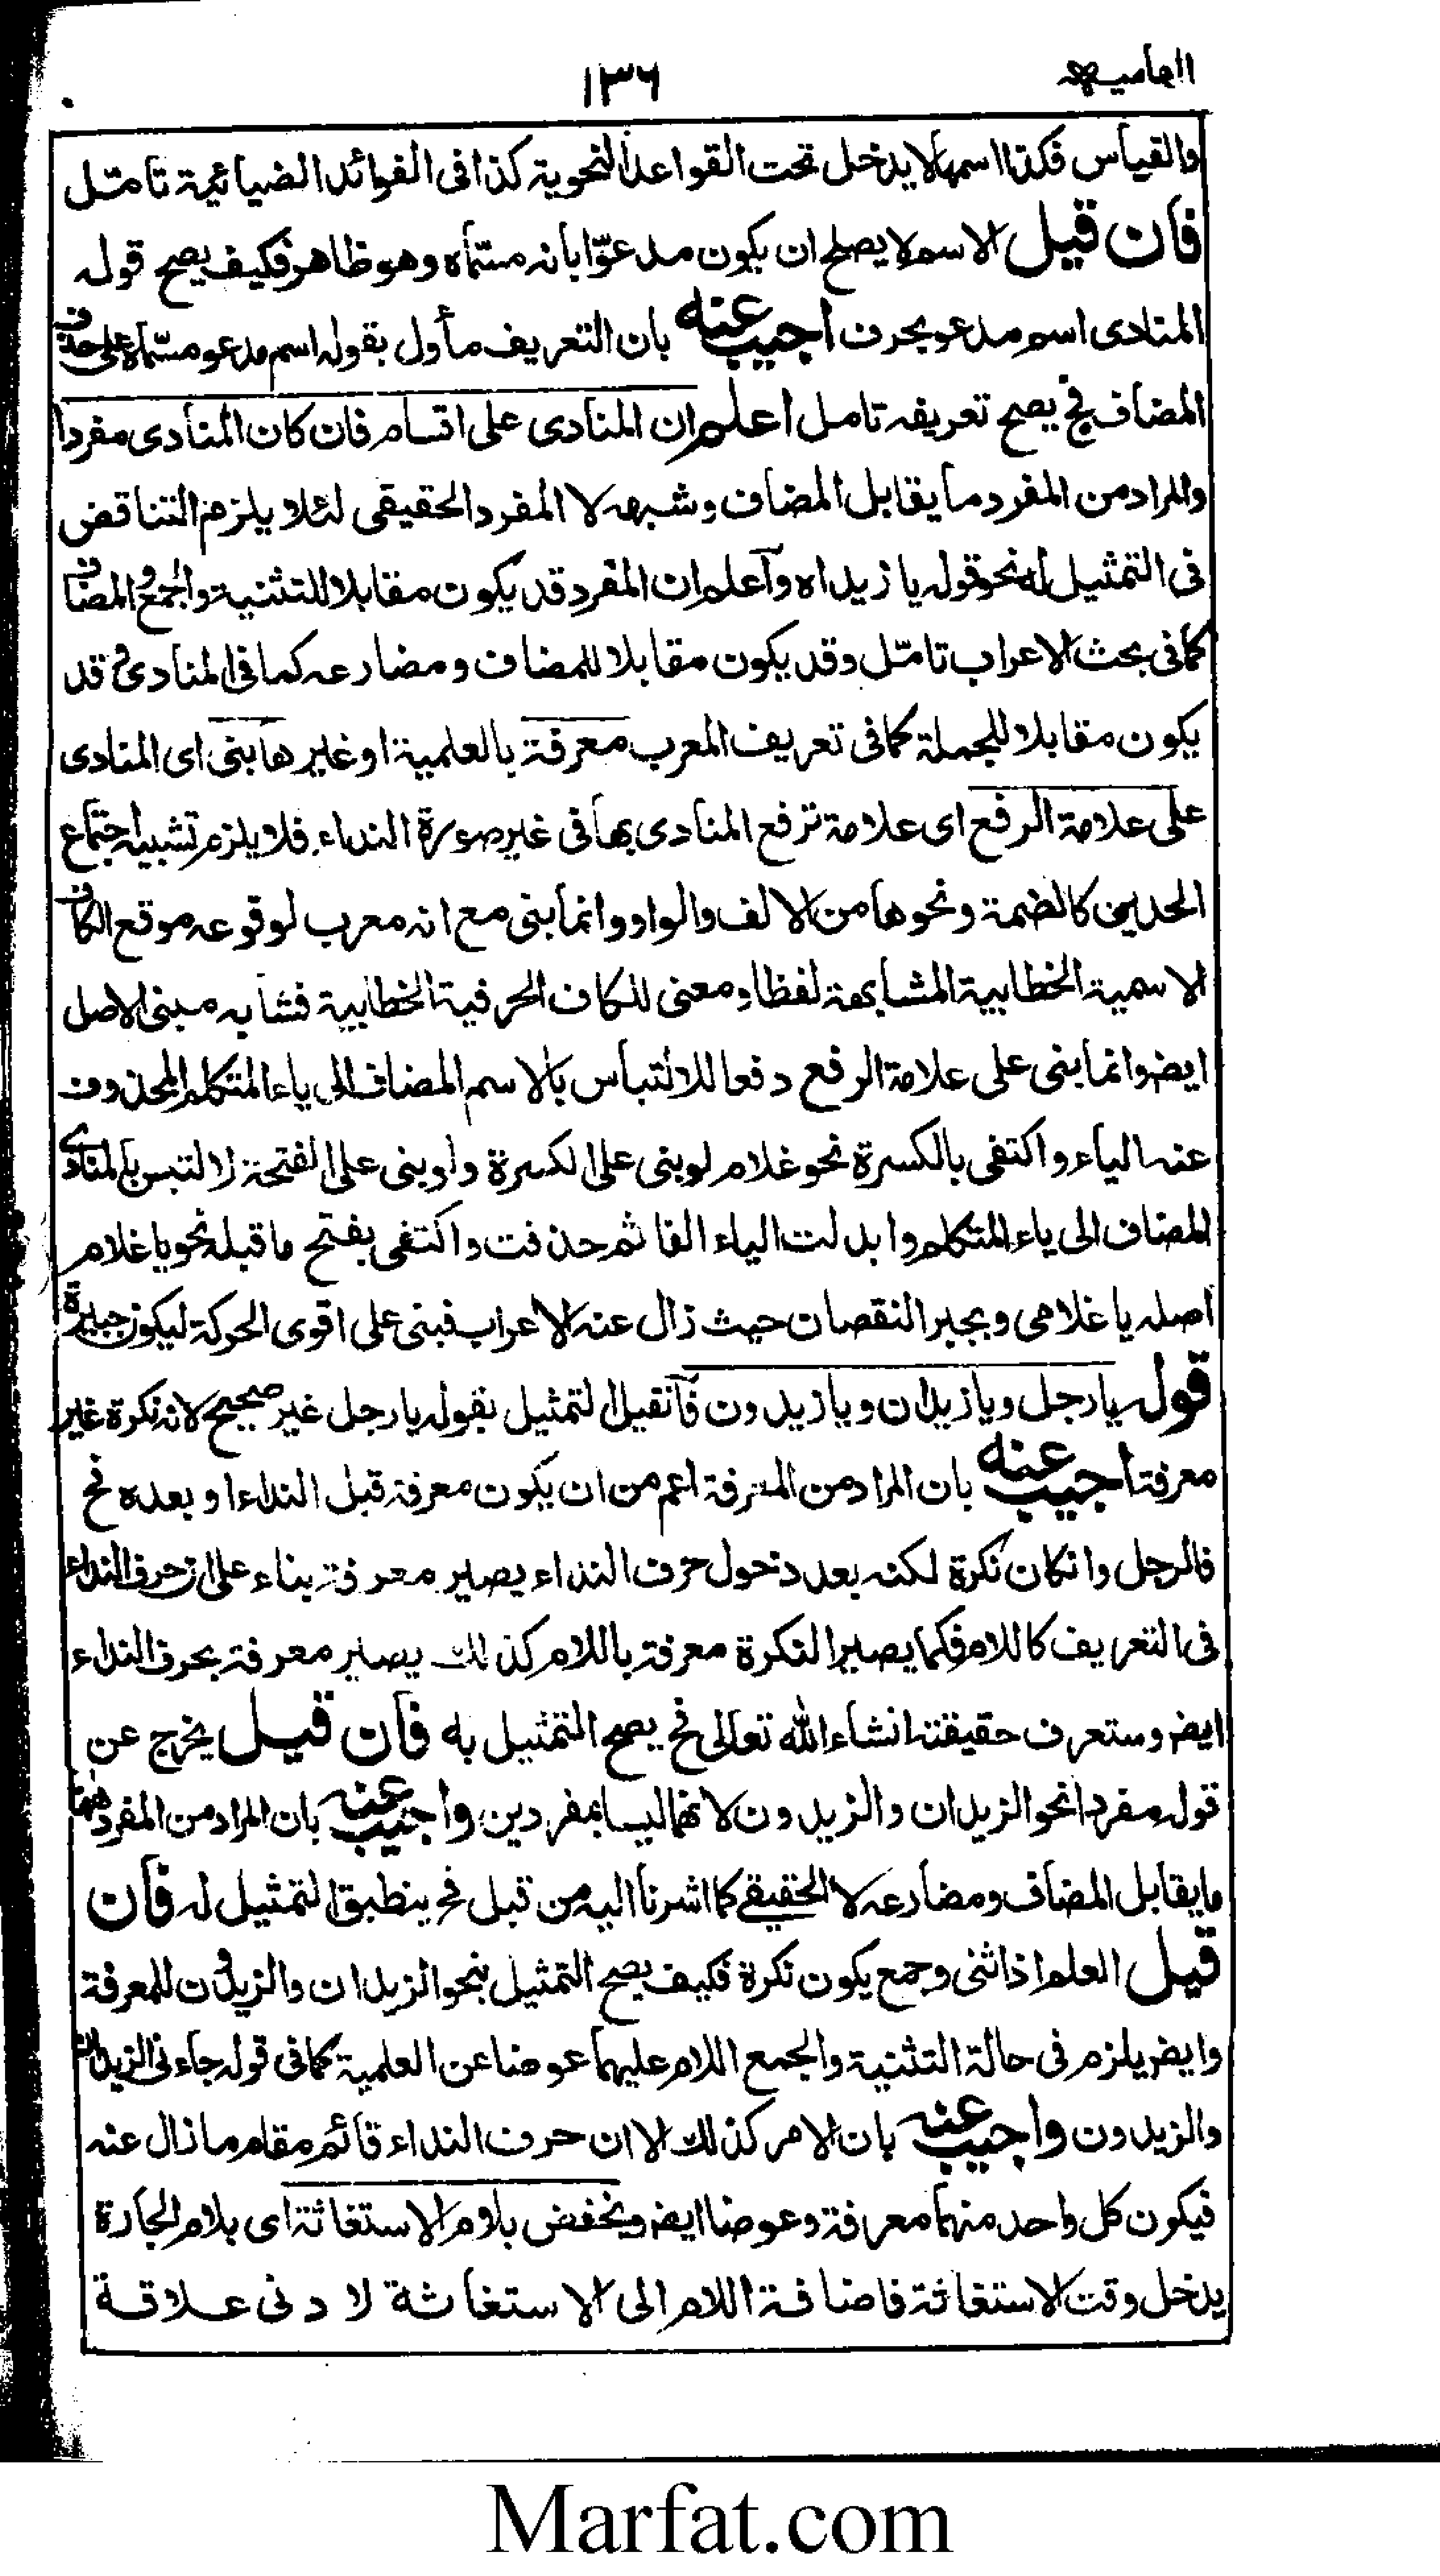 الهامیه
١٣٦
والقیاس فكذا اسمها لا یدخل تحت القواعد النحویة كذا فی الفوائد الضیائیة تامّل
فان قیل الاسم لا یصلح ان یكون مدعوّا بانه مسمّاه وهو ظاهر فكیف یصح قوله
المنادی اسم مدعو بحرف اجیب عنه بان التعریف مأول بقوله اسم مدعو مسمّاه علی حذف
المضاف فح یصح تعریفه تامل اعلم ان المنادی علی اقسام فان كان المنادی مفردا
والمراد من المفرد ما یقابل المضاف وشبهه لا المفرد الحقیقی لئلا یلزم التناقض
فی التمثیل له نحو قوله یا زیداه وآعلم ان المفرد قد یكون مقابلا للتثنیة والجمع والمضاف
كما فی بحث الاعراب تامّل وقد یكون مقابلا للمضاف ومضارعه كما فی المنادی وقد
یكون مقابلا للجملة كما فی تعریف المعرب معرفة بالعلمیة او غیرها بنی ای المنادی
علی علامة الرفع ای علامة ترفع المنادی بها فی غیر صورة النداء فلا یلزم تشبیه اجتماع
الحدین كالضمة ونحوها من الالف والواو وانما بنی مع انه معرب لوقوعه موقع الكاف
الاسمیة الخطابیة المشابهة لفظا ومعنی للكاف الحرفیة الخطابیة فشابه مبنی الاصل
ایض وانما بنی علی علامة الرفع دفعا للالتباس بالاسم المضاف الی یاء المتكلم المحذوف
عنه الیاء واكتفی بالكسرة نحو غلام لو بنی علی الكسرة ولو بنی علی الفتحة لالتبس بالمنادی
المضاف الی یاء المتكلم وابدلت الیاء الفا ثم حذفت واكتفی بفتح ما قبله نحو یا غلام
اصله یا غلامی ویجبر النقصان حیث زال عنه الاعراب فبنی علی اقوی الحركة لیكون جبیرة
قوله یا رجل ویا زیدان ویا زیدون فآنقیل التمثیل بقوله یا رجل غیر صحیح لانه نكرة غیر
معرفة اجیب عنه بان المراد من المعرفة اعم من ان یكون معرفة قبل النداء او بعده فح
فالرجل وانكان نكرة لكنه بعد دخول حرف النداء یصیر معرفة بناء علی ان حرف النداء
فی التعریف كاللام فكما یصیر النكرة معرفة باللام كذلك یصیر معرفة بحرف النداء
ایض وستعرف حقیقته انشاء الله تعالی فح یصح التمثیل به فان قیل یخرج عن
قوله مفردا نحو الزیدان والزیدون لانهما لیسا بمفردین واجیب عنه بان المراد من المفرد ههنا
ما یقابل المضاف ومضارعه لا الحقیقی كما اشرنا الیه من قبل فح ینطبق التمثیل له فان
قیل العلم اذا ثنی وجمع یكون نكرة فكیف یصح التمثیل بنحو الزیدان والزیدون للمعرفة
وایض یلزم فی حالة التثنیة والجمع اللام علیهما عوضا عن العلمیة كما فی قوله جاءنی الزیدان
والزیدون واجیب عنه بان الامر كذلك الا ان حرف النداء قائم مقام ما زال عنه
فیكون كل واحد منهما معرفة وعوضا ایض ویخفض بلام الاستغاثة ای بلام الجارة
یدخل وقت الاستغاثة فاضافة اللام الی الاستغاثة لادنی علاقة
Marfat.com